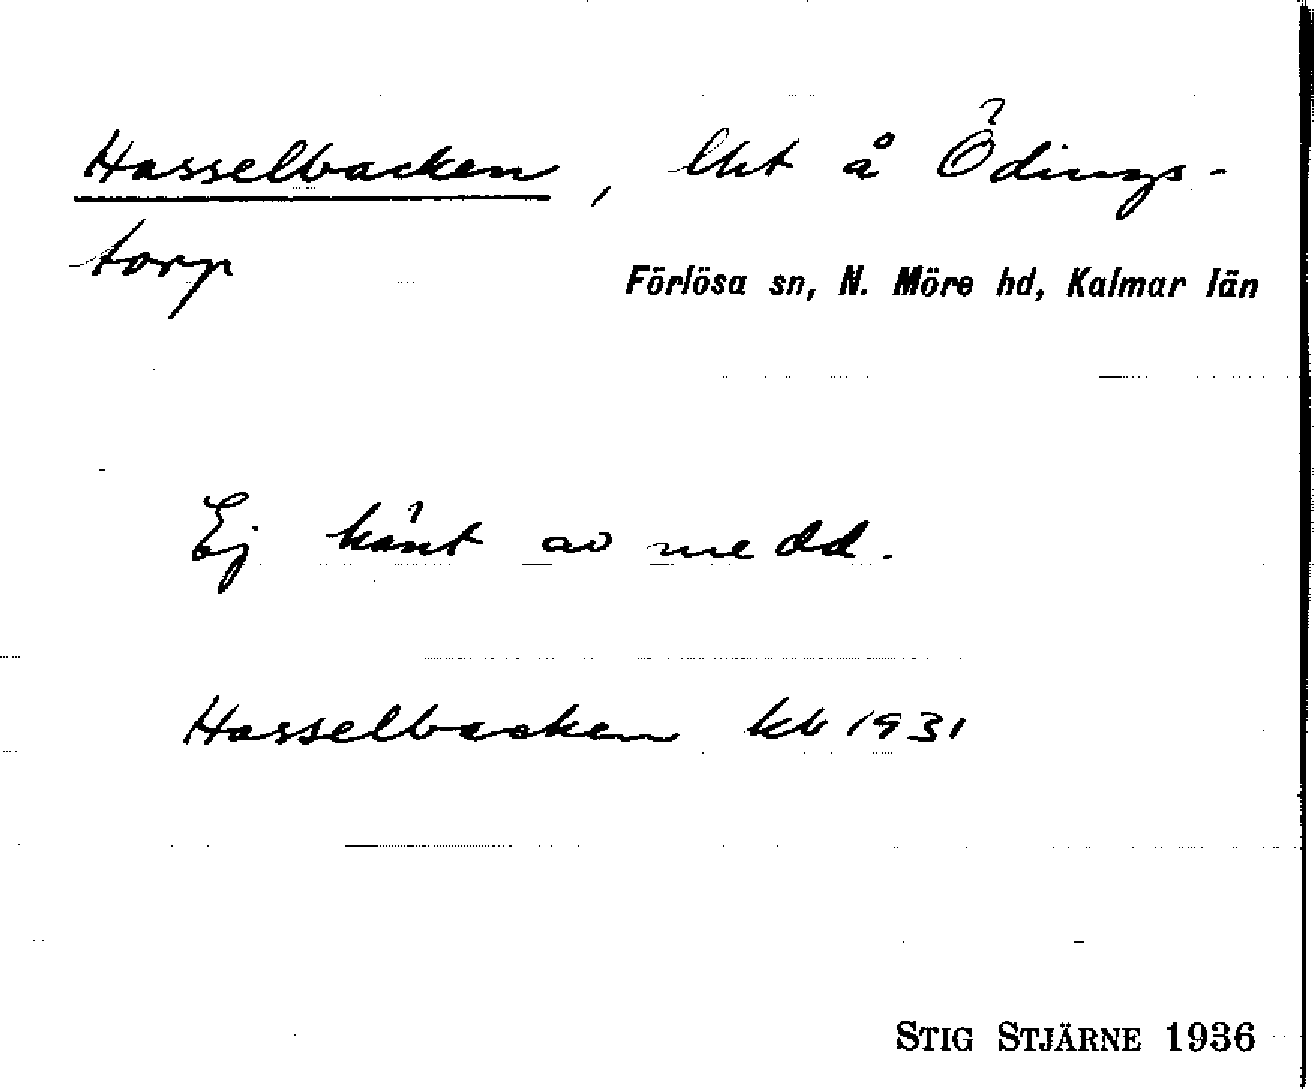 Hasselbacken, lht å Ödings-
torp
Förlösa sn, N. Möre hd, Kalmar län
Ej känt av medd.
Hasselbacken kb 1931
STIG STJÄRNE 1936